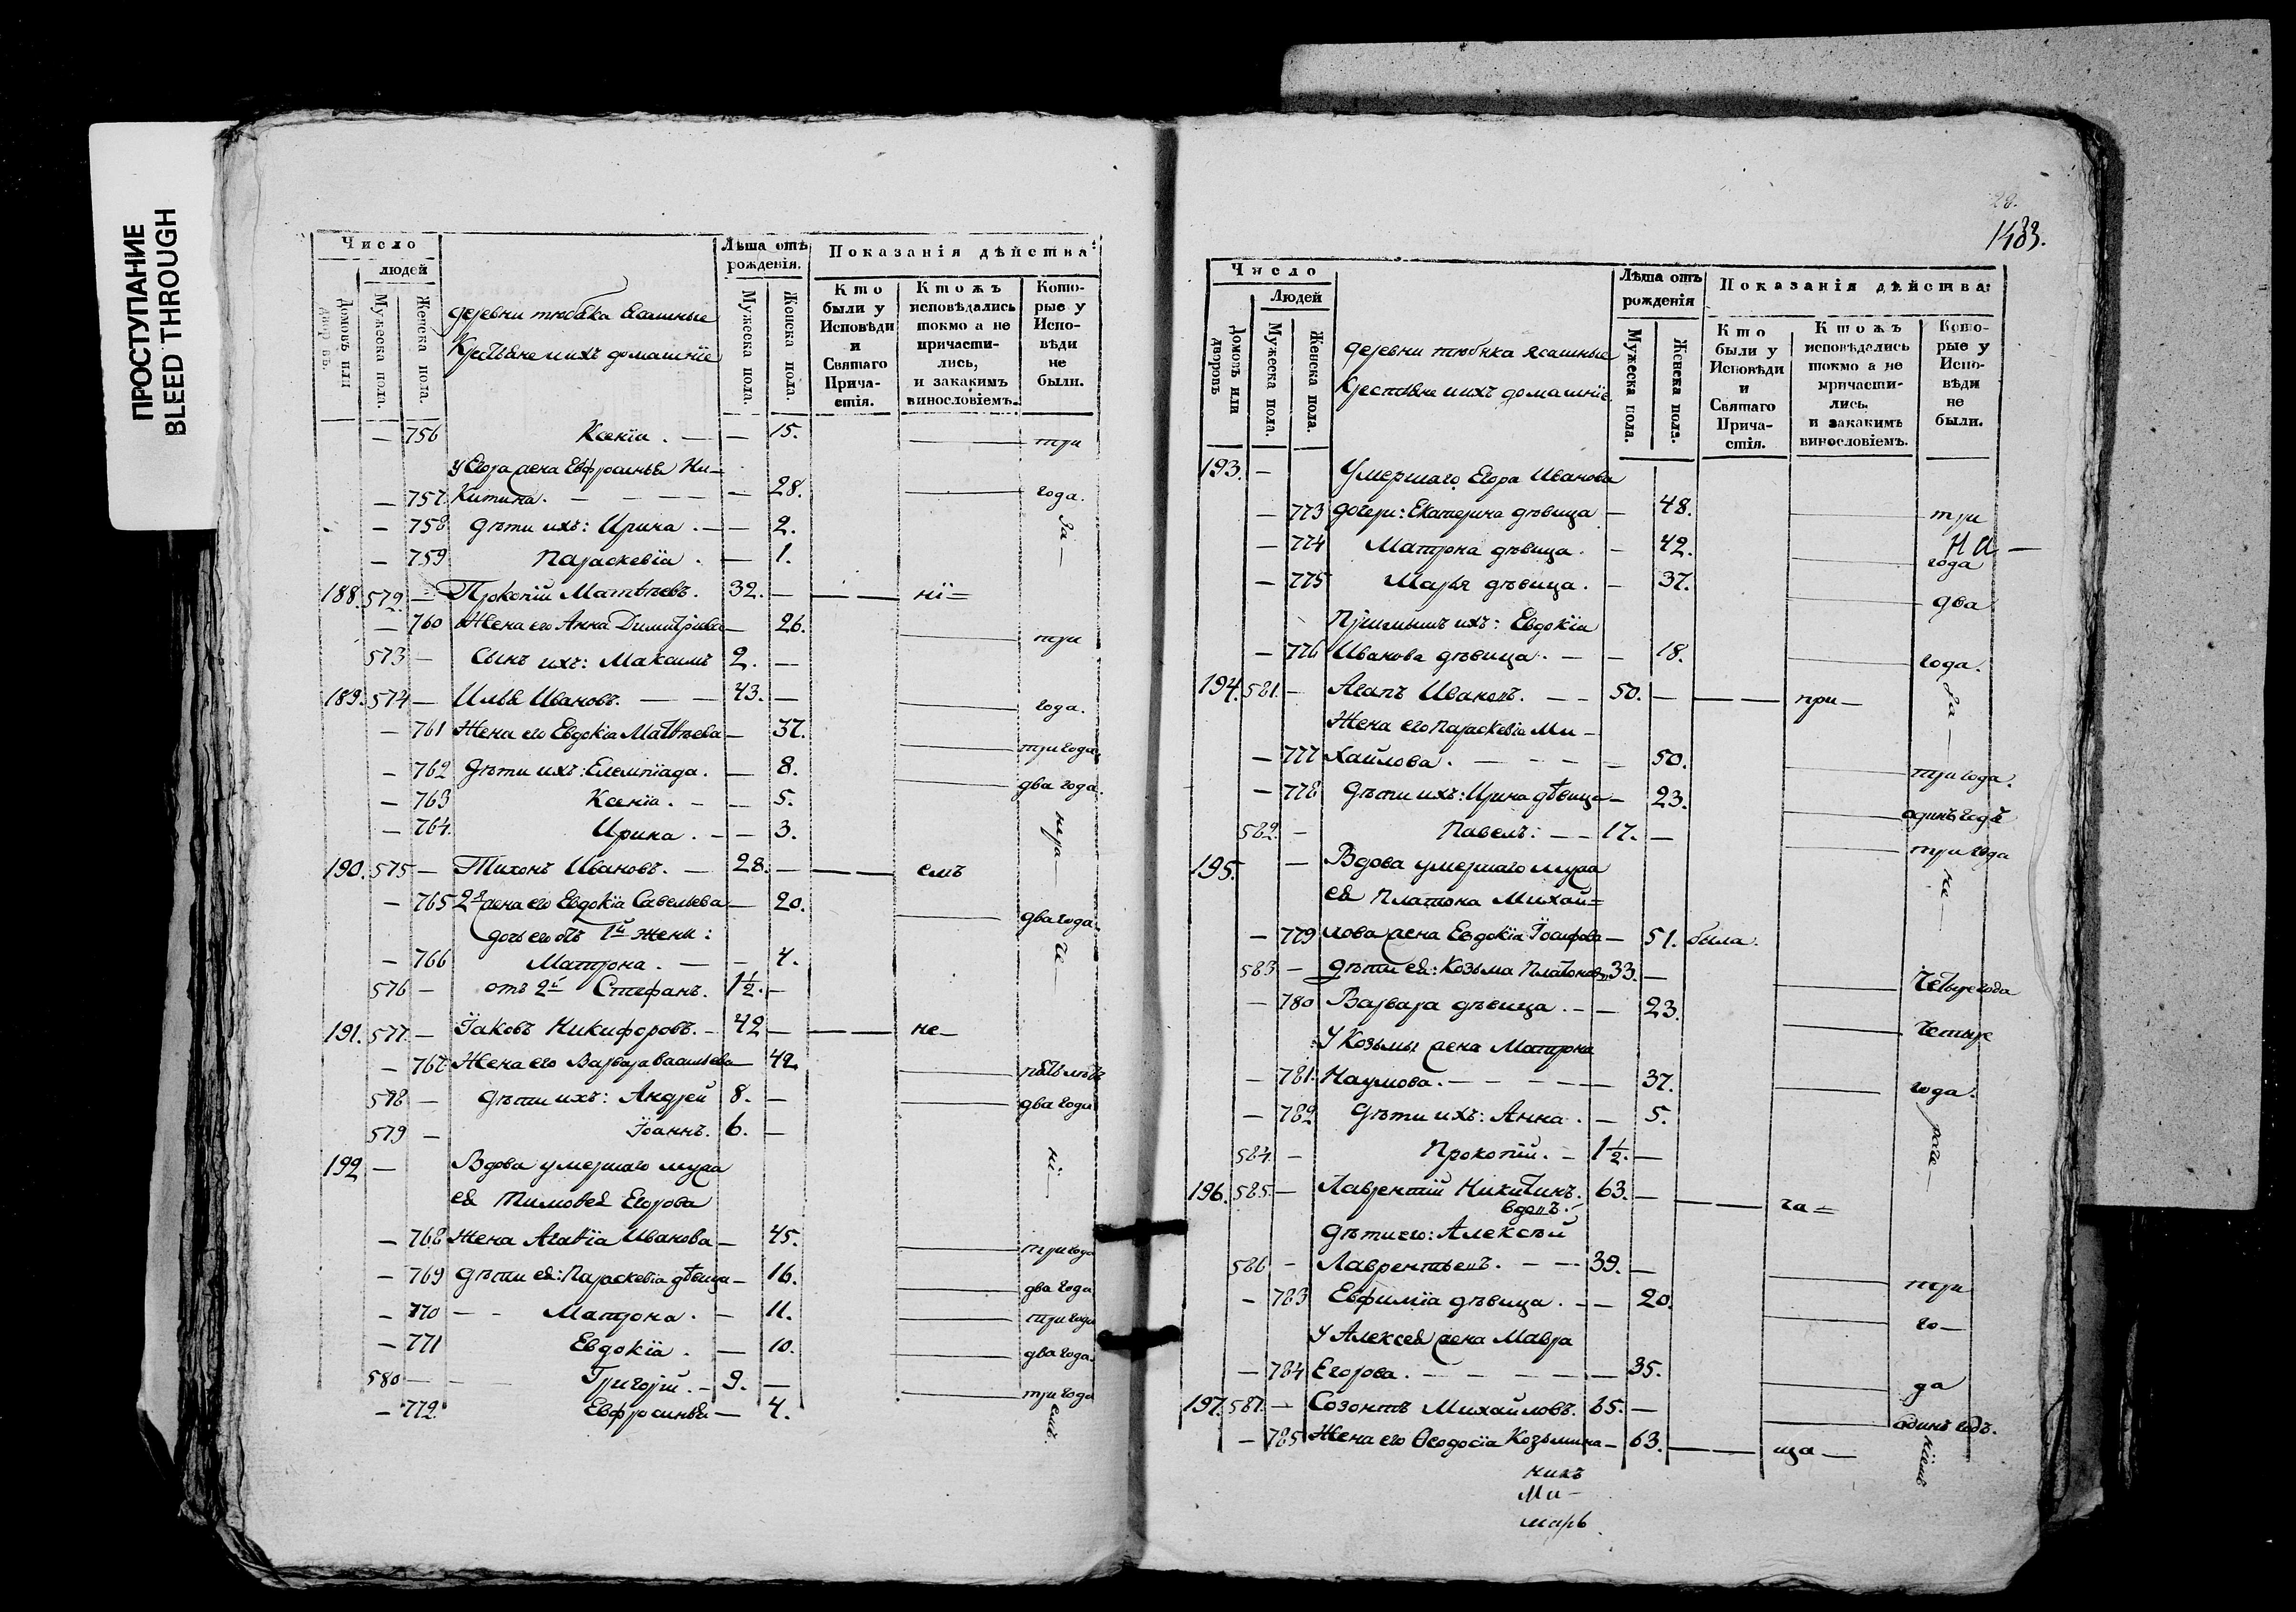 ПРОСТУПАНИЕ
BLEED THROUGH
Число
людей
Домовъ или
Мужеска пола.
Женска пола.
деревни тюбяка Ясашные
Крестьяне и ихъ домашнїе
Лѣта отъ
рожденія.
Мужеска пола.
Женска пола.
Показанія дѣйства:
Кто
были у
Исповѣди
и
Святаго
Прича-
стія.
Ктожъ
исповѣдались
токмо а не
причасти-
лись,
и закакимъ
винословіемъ.
Кото-
рые у
Испо-
вѣди
не
были.
— 756 Ксенїа. — — 15. — три
у Егора жена Евфросиньѧ Ни-
— 757 Китина. — — — — 28. — года.
— 758 дѣти ихъ: Ирина. — — 2. За —
— 759 Параскевїа. — 1.
188. 572. — Прокопїй Матвѣевъ. 32. — — — нї=
— 760 Жена его Анна Димитрїева — 26. — три
573 — Сынъ ихъ: Максимъ 2. —
189. 574 — Ильѧ Ивановъ. — — 43. — — года.
— 761 Жена его Евдокїа Матвѣева — 37. — три года.
— 762 дѣти ихъ: Елемпїада. — 8. — два года.
— 763 Ксенїа. — — 5.
— 764. Ирина. — — 3. нера —
190. 575 — Тихонъ Ивановъ. — 28. — — — емъ
— 765 2я жена его Евдокїа Савельева — 20. — два года.
дочь его отъ 1й жены:
— 766 Матрона. — — 4. Че —
576 — отъ 2й Стефанъ. 1½. —
191. 577. — Їаковъ Никифоровъ. — 42 — — — не —
— 767 Жена его Варвара Васильева — 42. — пѧть лѣтъ
578 — дѣти ихъ: Андрей 8. — — два года
579 — Їоаннъ. 6. —
192 — Вдова умершаго мужа
еѧ Тимоѳеѧ Егорова
— 768 Жена Агаѳїа Иванова — 45. — три года
— 769 дѣти еѧ: Параскевїа дѣвица — 16. — два года
— 770 — — Матрона. — 11. — три года
— 771 Евдокїа. — 10. — два года.
580 — — Григорїй. — 9. — — три года
— 772. Евфросиньѧ — 4.
1483.
Число
Людей
Домовъ или
дворовъ
Мужеска пола.
Женска пола.
деревни тюбяка Ясашные
Крестьяне и ихъ домашнїе.
Лѣта отъ
рожденія
Мужеска пола.
Женска пола.
Показанія дѣйства:
Кто
были у
Исповѣди
и
Святаго
Прича-
стія.
Ктожъ
исповѣдались
токмо а не
причасти-
лись.
и закакимъ
винословіемъ.
Кото-
рые у
Испо-
вѣди
не
были.
193. — Умершаго Егора Иванова
— 773 дочери: Екатерина дѣвица — 48. — три
— 774 Матрона дѣвица. — 42. — года
— 775 Марья дѣвица. — 37. — два
Прїимышъ ихъ: Евдокїа
— 776 Иванова дѣвица. — — 18. — года.
194. 581. — Агапъ Ивановъ. — — 50. — — — при —
Жена его Параскевїа Ми-
— 777 хайлова. — — — — 50. — три года.
— 778 дѣти ихъ: Ирина дѣвица — 23. — одинъ годъ
582. — Павелъ: — — 17. — — три года
195. — Вдова умершаго мужа
еѧ Платона Михай=
— 779 лова жена Евдокїа Їосифова — 51. была.
583 — дѣти еѧ: Козьма Платоновъ 33. — — Четыре года
— 780 Варвара дѣвица. — — 23. — Четыре
У Козьмы жена Матрона
— 781. Наумова. — — — — 37. — года.
— 782 дѣти ихъ: Анна. — 5.
584. — Прокопїй. — 1½. —
196. 585. — Лаврентїй Никитинъ. 63. — — — ча=
вдовъ.
дѣти его: Алексѣй
586 — Лаврентьевъ. — — 39. — — три
— 783 Евфимїа дѣвица. — — 20. — го —
У Алексеѧ жена Мавра
— 784 Егорова. — — — — 35. — да
197. 587. — Созонтъ Михайловъ. 65. — — одинъ годъ.
— 785 Жена его Ѳеодосїа Козьмина — 63. — — ща —